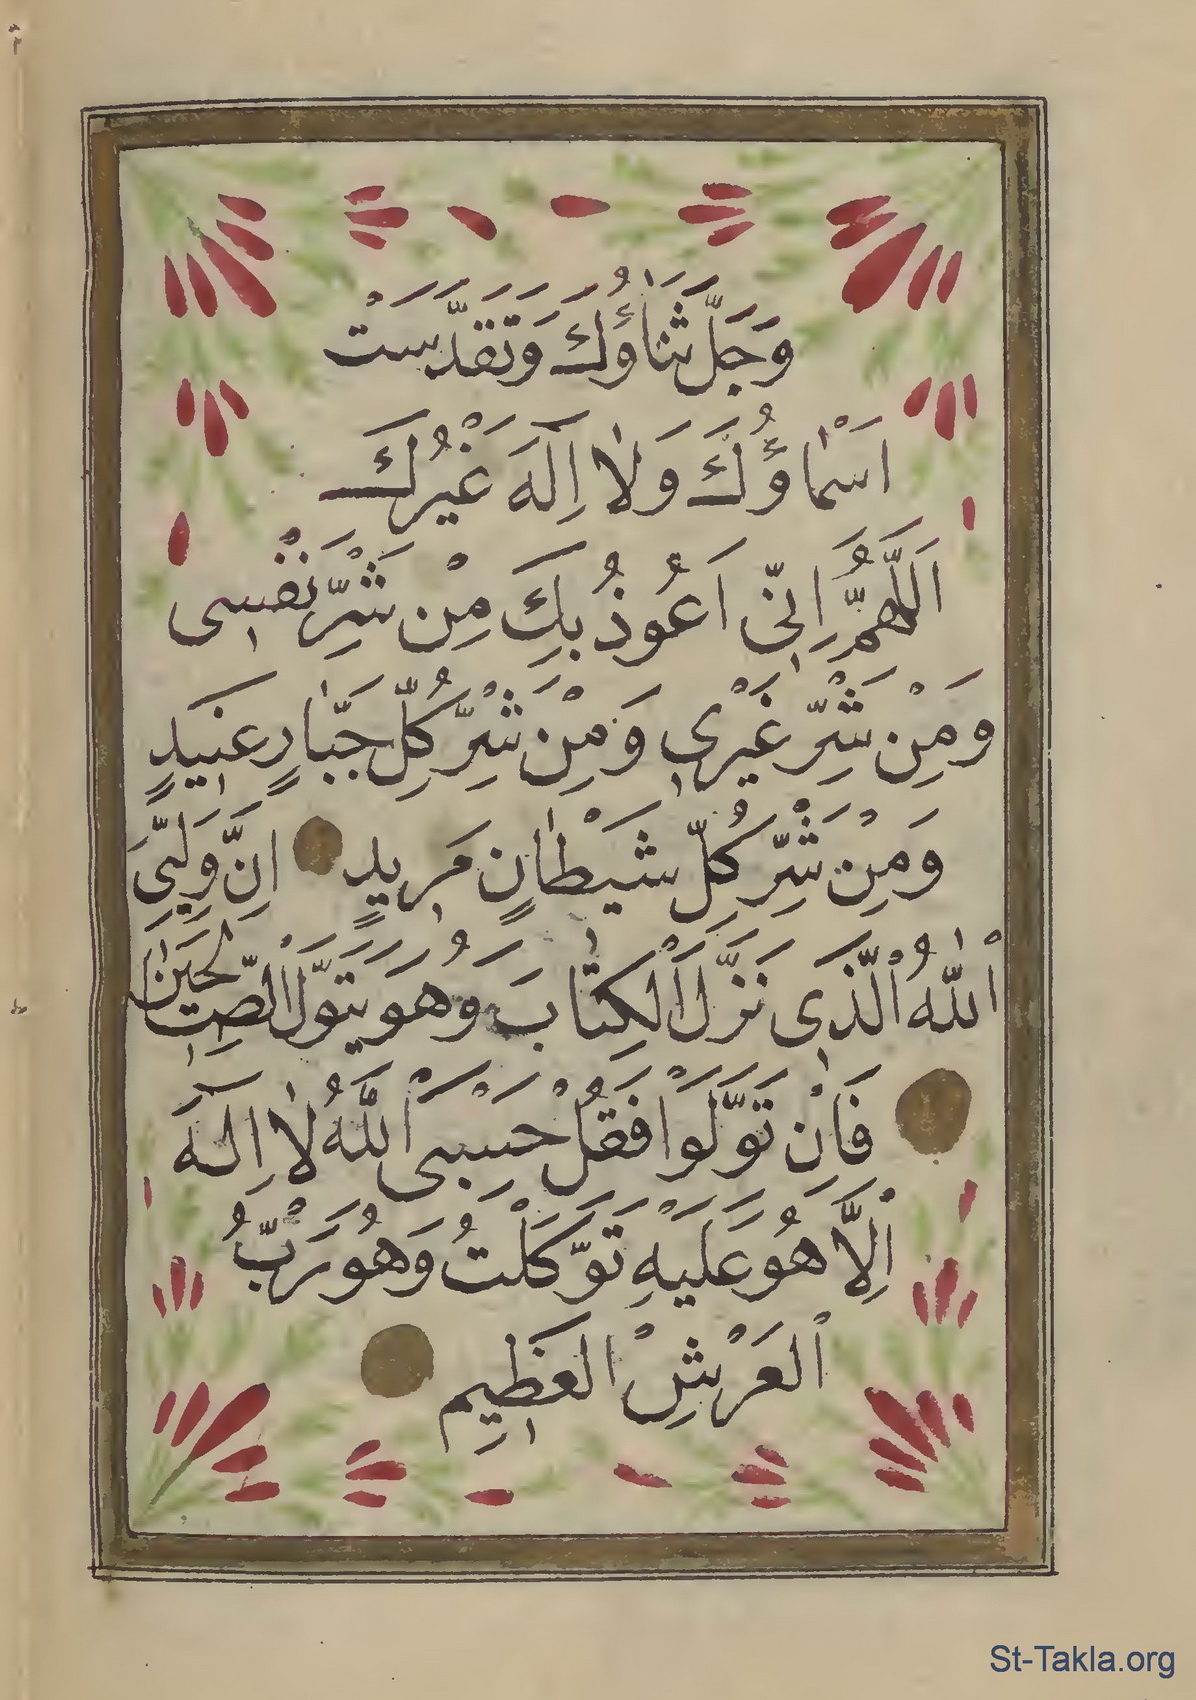 وَجَلَّ ثَنَاؤُكَ وَتَقَدَّسَتْ
اَسْمَاؤُكَ وَلَا اِلٰهَ غَيْرُكَ
اَللّٰهُمَّ اِنِّى اَعُوذُ بِكَ مِنْ شَرِّ نَفْسِى
وَمِنْ شَرِّ غَيْرِى وَمِنْ شَرِّ كُلِّ جَبَّارٍ عَنِيدٍ
وَمِنْ شَرِّ كُلِّ شَيْطَانٍ مَرِيدٍ اِنَّ وَلِيِّىَ
اللّٰهُ الَّذِى نَزَّلَ الْكِتَابَ وَهُوَ يَتَوَلَّ الصَّالِحِينَ
فَاِنْ تَوَلَّوْا فَقُلْ حَسْبِىَ اللّٰهُ لَا اِلٰهَ
اِلَّا هُوَ عَلَيْهِ تَوَكَّلْتُ وَهُوَ رَبُّ
الْعَرْشِ الْعَظِيمِ
St-Takla.org